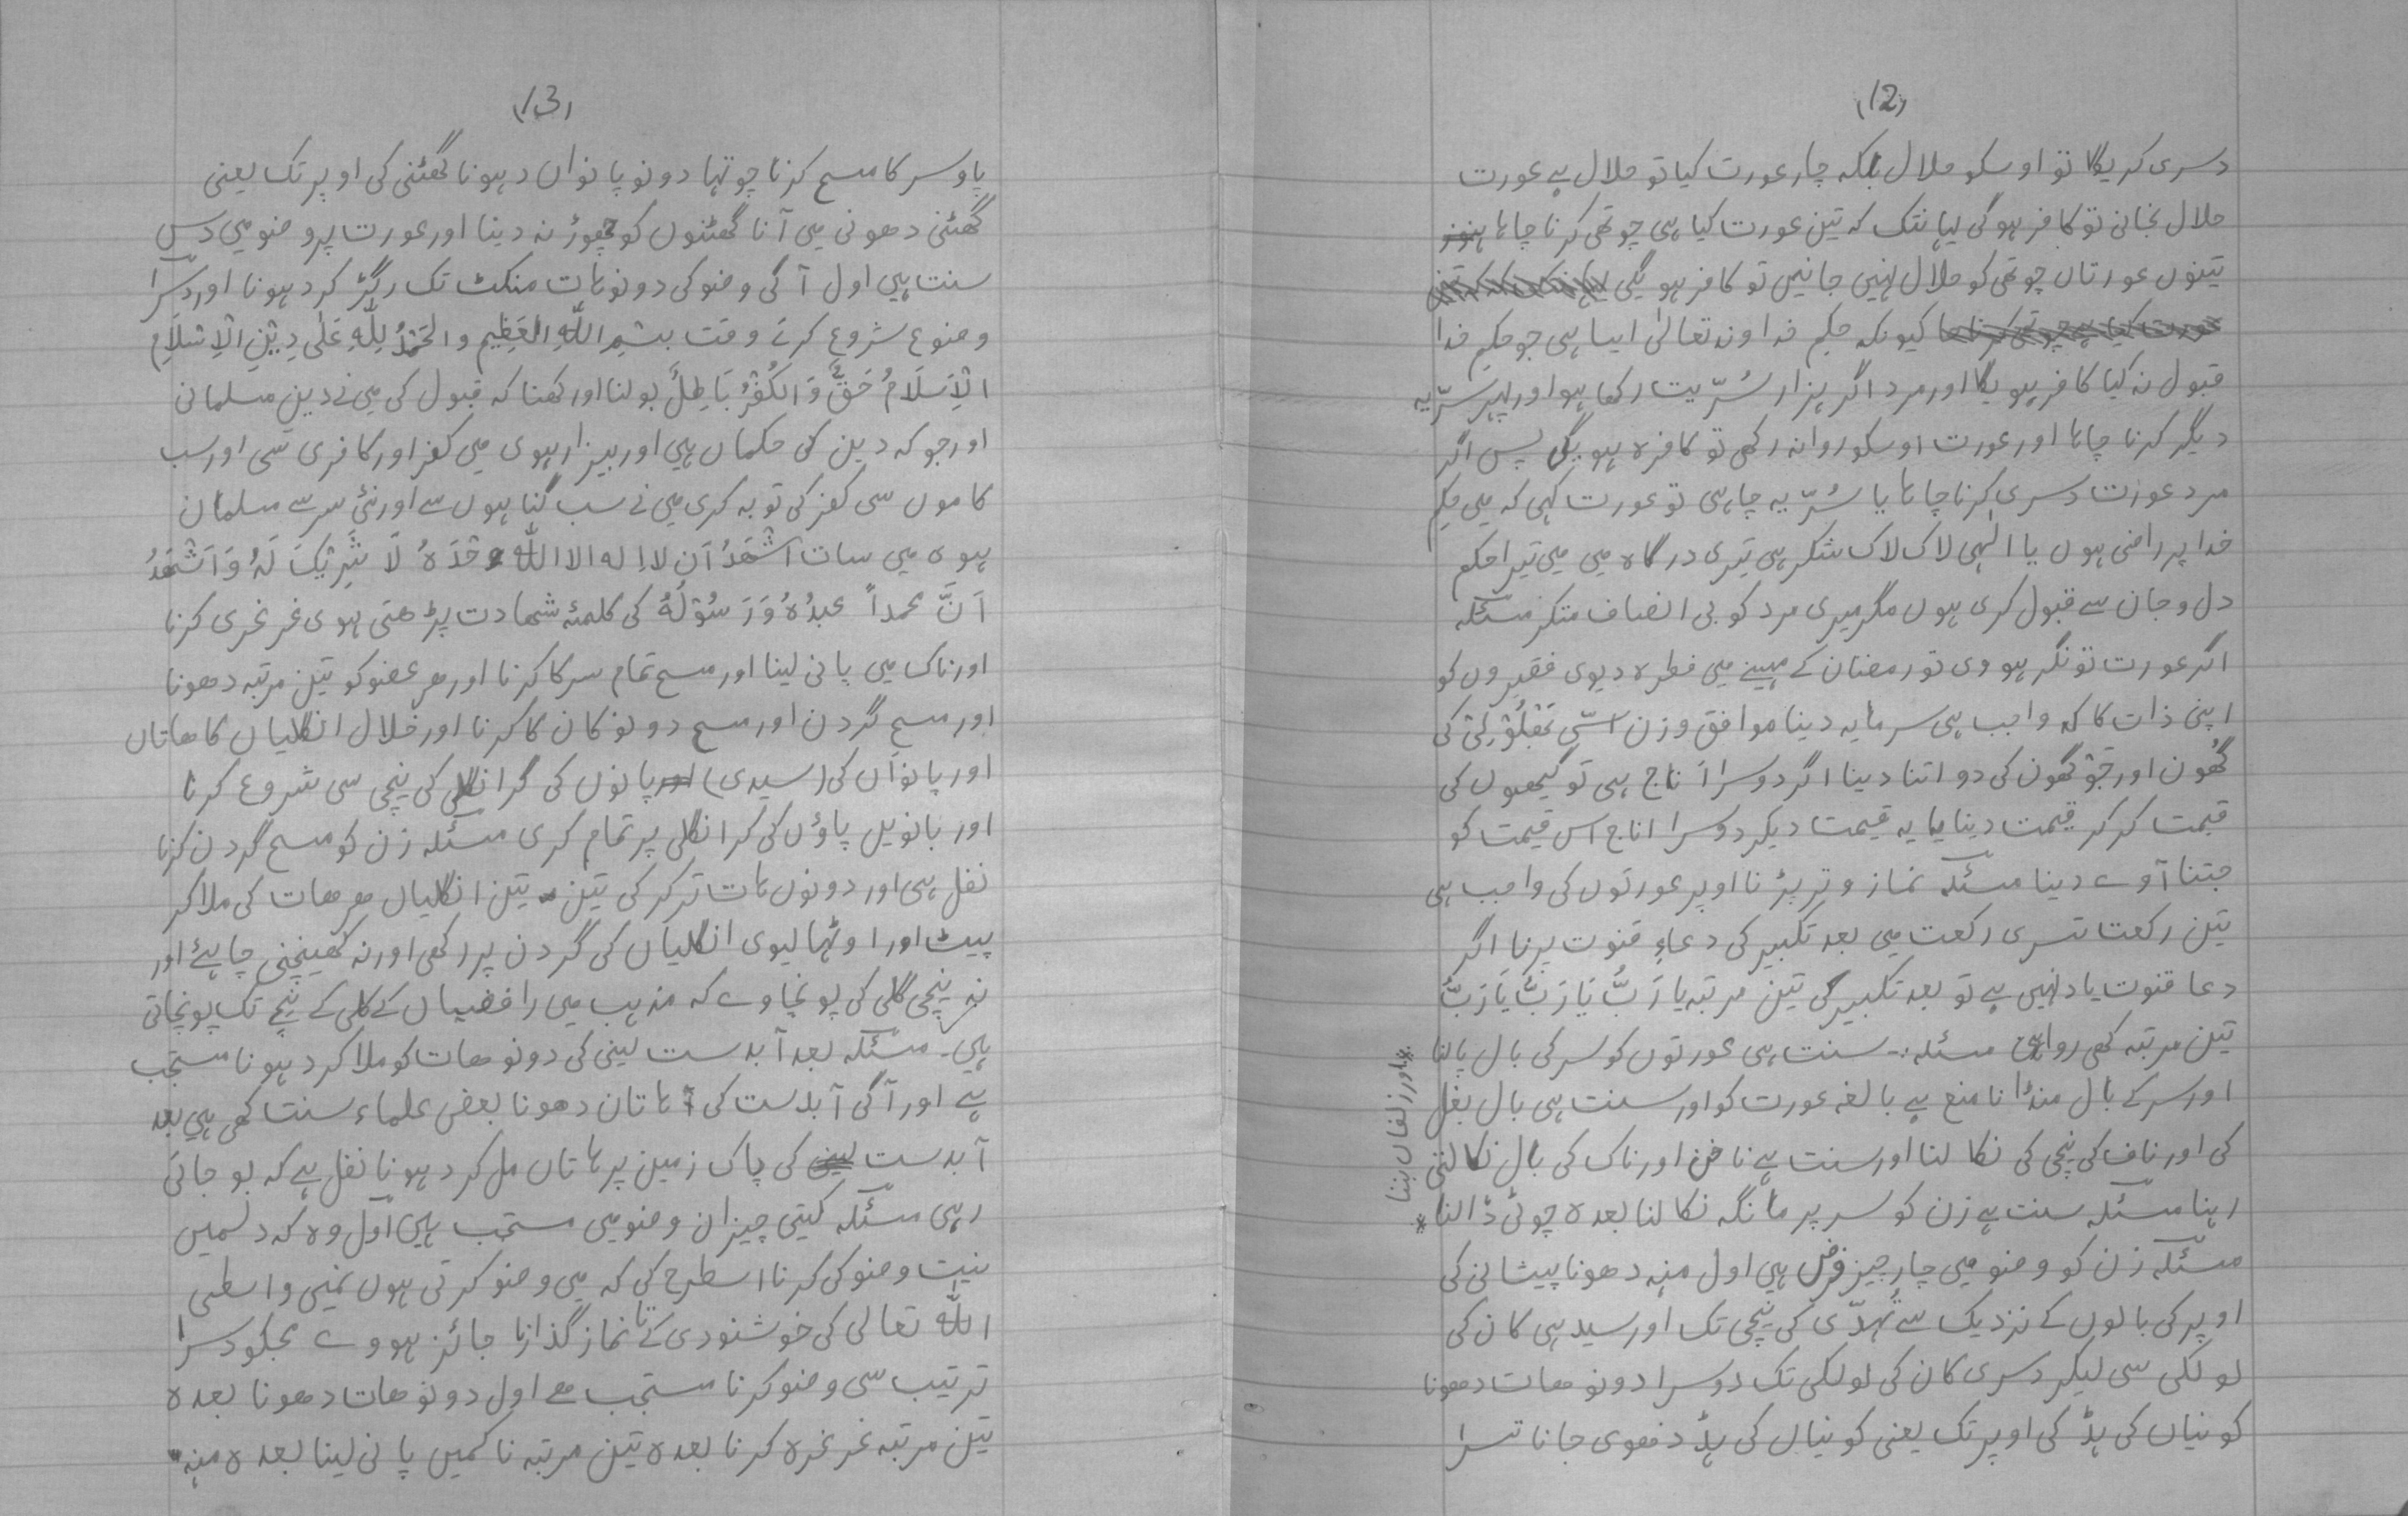 (12)
دسری کریگا تو اوسکو حلال بلکہ چار عورت کیا تو حلال ہے عورت
حلال نجانی تو کافر ہوگی لہانتک کہ تین عورت کیا ہی چوتھی کرنا چاہا
تینوں عورتاں چوتھی کو حلال نہیں جانیں تو کافر ہو یگی
کیونکہ حکم خدا وند تعالیٰ ایسا ہی جو حکم خدا
قبول نہ کیا کافر ہو یگا اور مرد اگر ہزار سُرّیت رکھا ہو اور پہر سرّیہ
دیگر کرنا چاہا اور عورت اوسکو روا نہ رکھی تو کافرہ ہویگی پس اگر
مرد عورت دسری کرنا چاہا یا سُرّیہ چاہی تو عورت کہی کہ میں حکم
خدا پر راضی ہوں یا الٰہی لاک لاک شکر ہی تیری درگاہ میں میں تیرا حکم
دل و جان سے قبول کری ہوں مگر میری مرد کو بی انصاف متکر مسئلہ
اگر عورت تونگر ہووی تو رمضان کے مہینے میں فطرہ دیوی فقیروں کو
اپنی ذات کا کہ واجب ہی سرمایہ دینا موافق وزن اسّی کی
گہُون اور جَوْ گھون کی دو اتنا دینا اگر دوسرا اَناج ہی تو گیھوں کی
قیمت کر کر قیمت دینا یا یہ قیمت دیکر دوسرا اناج اس قیمت کو
جتنا آوے دینا مسئلہ نماز وتر پڑنا اوپر عورتوں کی واجب ہی
تین رکعت تسری رکعت میں بعد تکبیر کی دعاءِ قنوت پرنا اگر
دعا قنوت یاد نہیں ہے تو بعد تکبیر کی تین مرتبہ یا رَبُّ یَا رَبُّ یَا رَبُّ
تین مرتبہ کھی روا ہی مسئلہ :۔ سنت ہی عورتوں کو سر کی بال پالنا
اور سر کے بال منڈانا منع ہے بالغہ عورت کو اور سنت ہی بال بغل
کی اور ناف کی نیچی کی نکالنا اور سنت ہے ناخن اور ناک کی بال نکالتی
رہنا مسئلہ سنت ہے زن کو سر پر مانگہ نکالنا بعدہ چوٹی ڈالنا *
* اور زلفاں بننا
مسئلہ زن کو وضو میں چار چیز فرض ہیں اول منہ دھونا پیشانی کی
اوپر کی بالوں کے نزدیک سے ٹُہڈّی کی نیچی تک اور سیدہی کان کی
لولکی سی لیکر دسری کان کی لولکی تک دوسرا دونو ھات دھونا
کونیاں کی ہڈ کی اوپر تک یعنی کونیاں کی ہڈ دھوی جانا تسرا
(13)
پاوسر کا مسح کرنا چوتہا دونو پانواں دہونا گھٹنی کی اوپر تک یعنی
گھٹنی دھونی میں آنا گھٹنوں کو چھوڑ نہ دینا اور عورت پر وضو میں دس
سنت ہیں اول آگی وضو کی دونو ہات منکٹ تک رگڑ کر دہونا اور دسرا
وضوع شروع کرتے وقت بِسْمِ اللّٰہِ الْعَظِیم وَالْحَمْدُ لِلّٰہِ عَلٰی دِیْنِ الْاِسْلَامِ
اَلْاِسْلَامُ حَقٌّ وَّالْکُفْرُ بَاطِلٌ بولنا اور کھنا کہ قبول کی میں نے دین مسلمانی
اور جو کہ دین کی حکماں ہیں اور بیزار ہوی میں کفر اور کافری سی اور سب
کاموں سی کفر کی توبہ کری میں نے سب گناہوں سے اور نئی سر سے مسلمان
ہوی میں سات اَشْھَدُ اَن لا اِلہ الا اللّٰہ وحْدَہٗ لَا شَرِیْکَ لَہٗ وَ اَشْھَدُ
اَنَّ محمداً عبدُہٗ وَرَسُوْلُہٗ کی کلمئہ شھادت پڑھتی ہوی غرغری کرنا
اور ناک میں پانی لینا اور مسح تمام سر کا کرنا اور ھر عضو کو تین مرتبہ دھونا
اور مسح گردن اور مسح دونو کان کا کرنا اور خلال انگلیاں کا ھاتاں
اور پانواَں کی (سیدی) پانوں کی گرانگلی کی نیچی سی شروع کرنا
اور بانویں پاؤں کی کرانگلی پر تمام کری مسئلہ زن کو مسح گردن کرنا
نفل ہی اور دونوں ہات تر کر کی تین تین انگلیاں ھر ھات کی ملا کر
پیٹ اور اوٹہا لیوی انگلیاں کی گردن پر رکھی اور نہ کھینچنی چاہیٔے اور
نہ نیچی گلی کی پونچاوے کہ مذہب میں رافضیاں کے گلی کے نیچے تک پونچاتی
ہیں۔ مسئلہ بعد آبدست لینی کی دونو ھات کو ملا کر دہونا مستحب
ہے اور آگی آبدست کی ہاتان دھونا بعض علماء سنت کھی ہیں بعد
آبدست کی پاک زمین پر ہاتاں مل کر دہونا نفل ہے کہ بو جاتی
رہی مسئلہ کیتی چیزاں وضو میں مستحب ہیں اول وہ کہ دلمیں
نیت وضو کی کرنا اسطرح کی کہ میں وضو کرتی ہوں نمیں واسطی
اللّٰہ تعالی کی خوشنودی کے تا نماز گذارنا جائز ہووے مجکو دسرا
ترتیب سی وضو کرنا مستحب ھے اول دونو ھات دھونا بعدہ
تین مرتبہ غرغرہ کرنا بعدہ تین مرتبہ ناکمیں پانی لینا بعدہ منہ